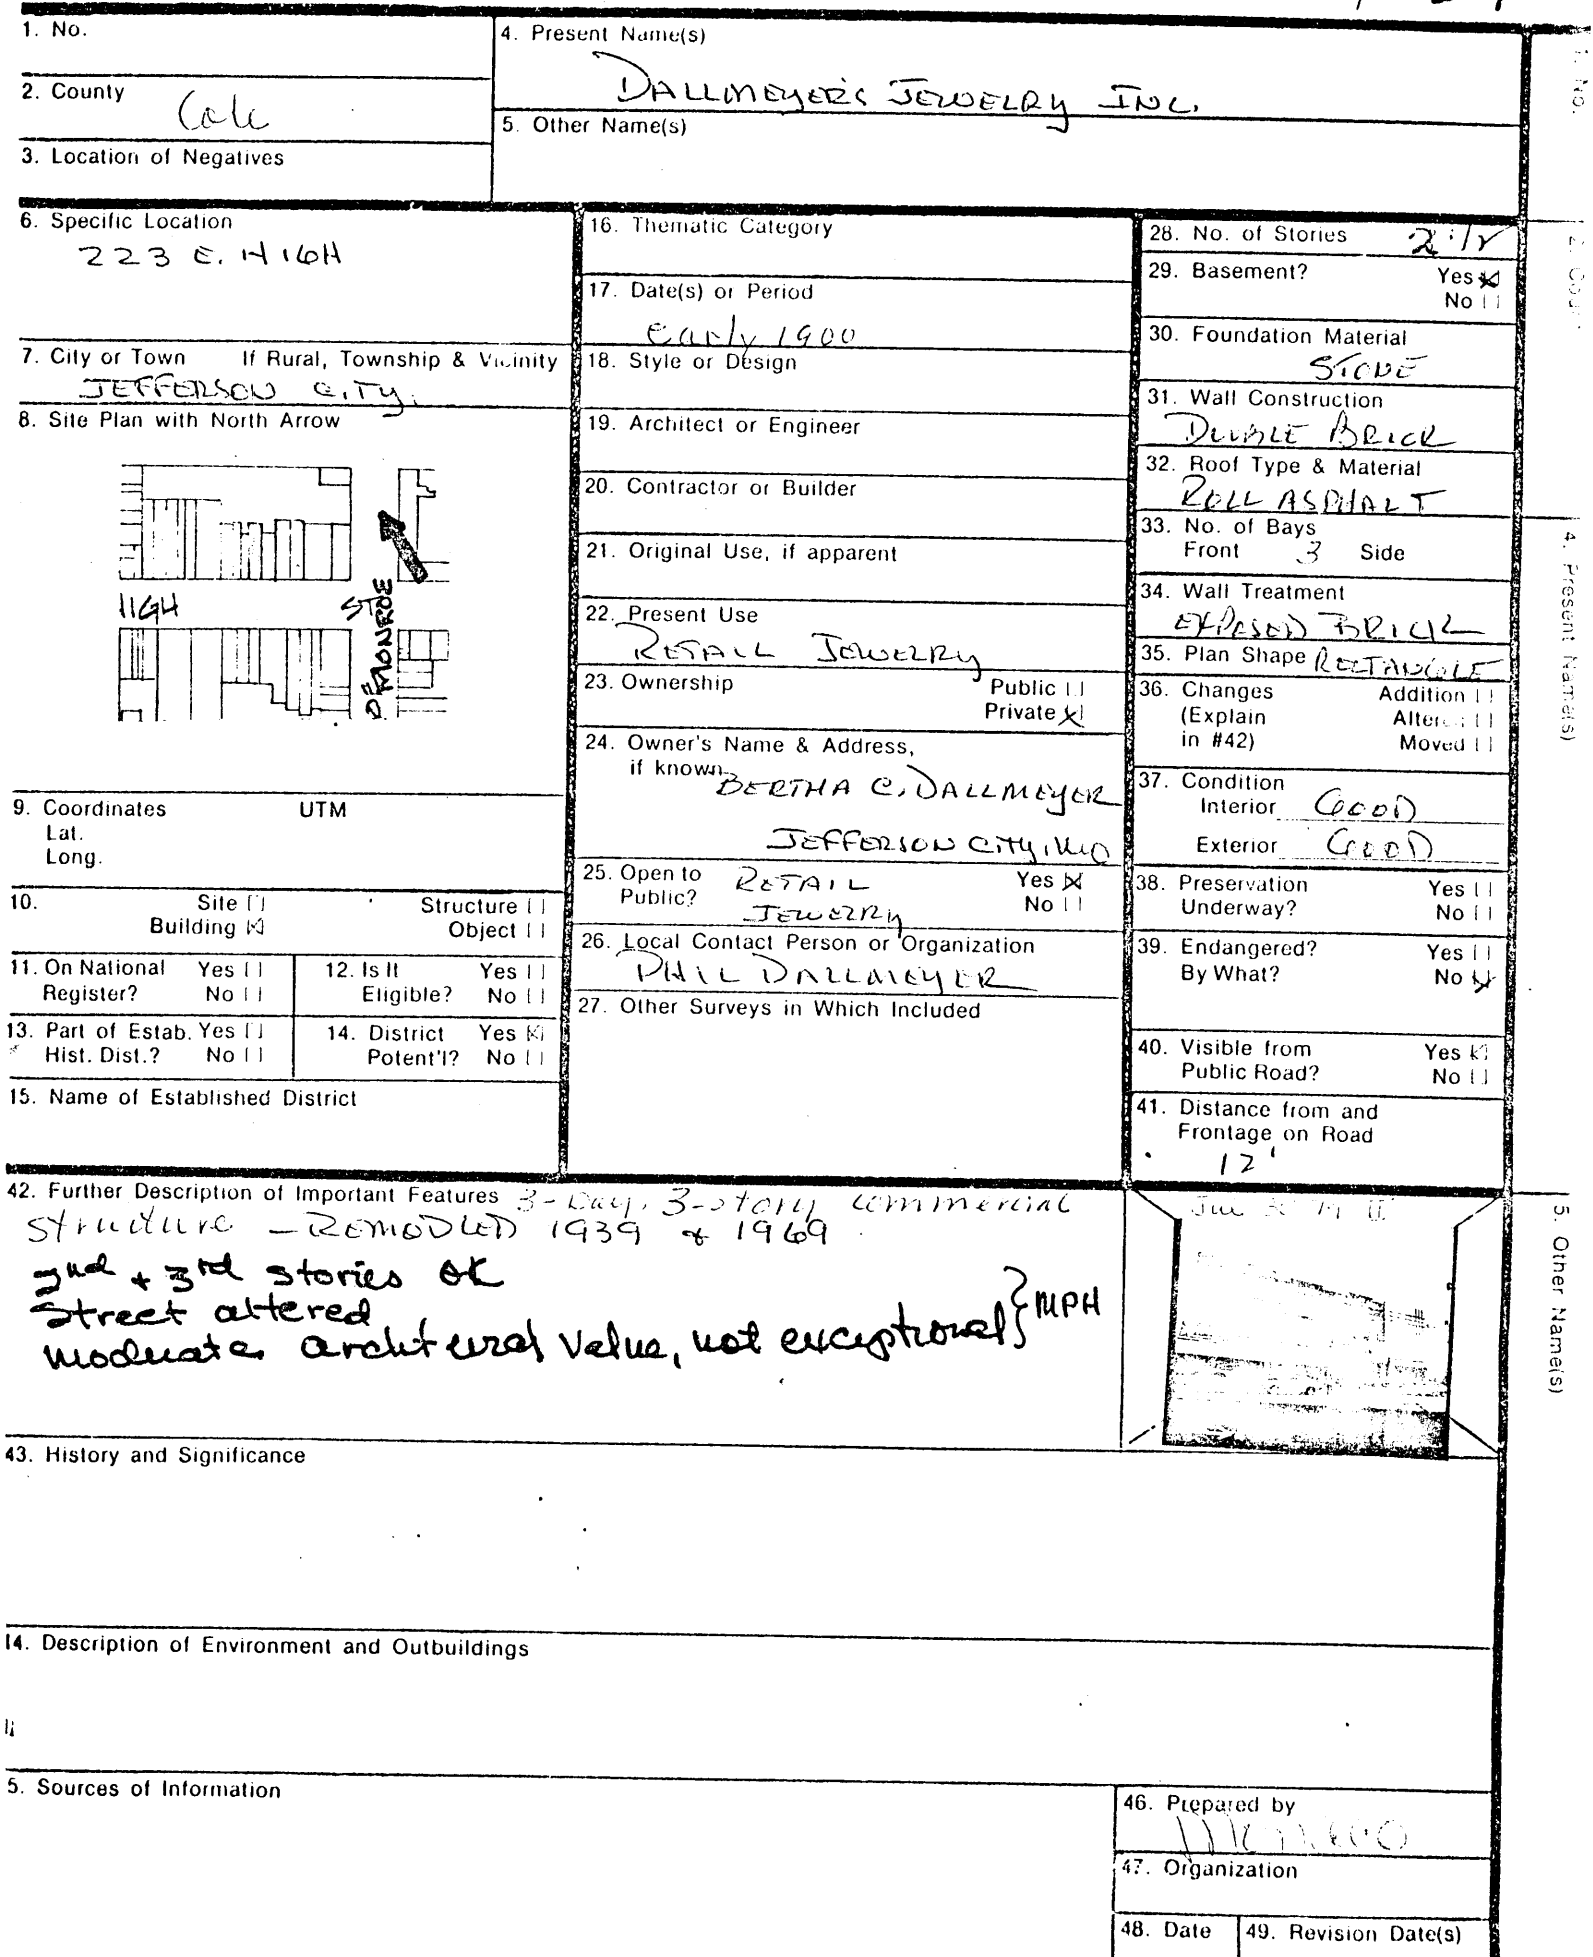 1. No.
2. County
Cole
3. Location of Negatives
4. Present Name(s)
DALLMEYER'S JEWELRY INC.
5. Other Name(s)
6. Specific Location
223 E. HIGH
7. City or Town If Rural, Township & Vicinity
JEFFERSON CITY.
8. Site Plan with North Arrow
HIGH ST
MONROE
9. Coordinates UTM
Lat.
Long.
10. Site [ ] Structure [ ]
Building [X] Object [ ]
11. On National Register? Yes [ ] No [ ]
12. Is It Eligible? Yes [ ] No [ ]
13. Part of Estab. Hist. Dist.? Yes [ ] No [ ]
14. District Potent'l? Yes [X] No [ ]
15. Name of Established District
16. Thematic Category
17. Date(s) or Period
early 1900
18. Style or Design
19. Architect or Engineer
20. Contractor or Builder
21. Original Use, if apparent
22. Present Use
RETAIL JEWELRY
23. Ownership Public [ ]
Private [X]
24. Owner's Name & Address,
if known
BERTHA C. DALLMEYER
JEFFERSON CITY, MO
25. Open to Public? RETAIL JEWELRY Yes [X] No [ ]
26. Local Contact Person or Organization
PHIL DALLMEYER
27. Other Surveys in Which Included
28. No. of Stories 2
29. Basement? Yes [X]
No [ ]
30. Foundation Material
STONE
31. Wall Construction
DOUBLE BRICK
32. Roof Type & Material
ROLL ASPHALT
33. No. of Bays
Front 3 Side
34. Wall Treatment
EXPOSED BRICK
35. Plan Shape RECTANGLE
36. Changes (Explain in #42) Addition [ ]
Altered [ ]
Moved [ ]
37. Condition
Interior GOOD
Exterior GOOD
38. Preservation Underway? Yes [ ] No [ ]
39. Endangered? By What? Yes [ ] No [X]
40. Visible from Public Road? Yes [X] No [ ]
41. Distance from and
Frontage on Road
12'
42. Further Description of Important Features 3-bay, 3-story commercial
structure - REMODLED 1939 & 1969
2nd + 3rd stories OK
Street altered
} MPH
43. History and Significance
14. Description of Environment and Outbuildings
5. Sources of Information
46. Prepared by
47. Organization
48. Date 49. Revision Date(s)
1. No.
4. Present Name(s)
5. Other Name(s)